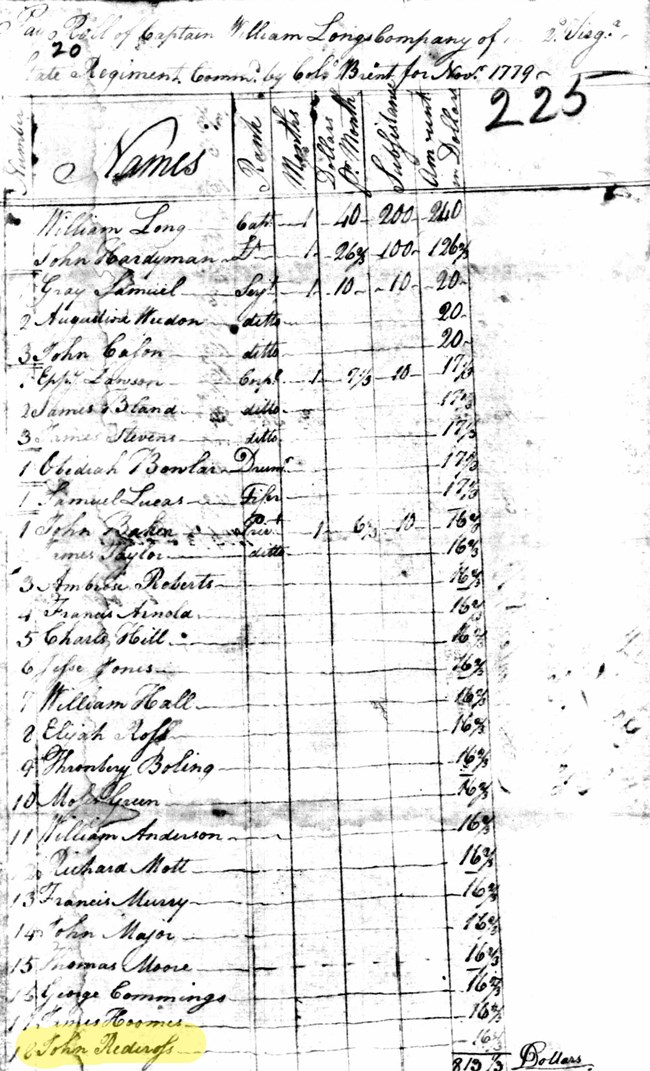 Pay Roll of Captain William Longs Company of 2d Virga
20
State Regiment Commd. by Colo Brent for Novr. 1779
225
Number Names Rank Months Dollars Pr. Month Subsistence Amount in Dollars
William Long Capt 1 40 200 240
John Hardyman Lt 1 26 2/3 100 126 2/3
1 Gray Samuel Serjt 1 10 10 20
2 Augustine Weedon ditto 20
3 John Calon ditto 20
1 Epps. Lawson Corpl 1 7 1/3 10 17 1/3
2 James Bland ditto 17 1/3
3 James Stevens ditto 17 1/3
1 Obediah Bowlar Drumr 17 1/3
1 Samuel Lucas Fifer 17 1/3
1 John Baker Privt 1 6 2/3 10 16 2/3
James Taylor ditto 16 2/3
3 Ambrose Roberts 16 2/3
4 Francis Arnold 16 2/3
5 Charls Hill 16 2/3
6 Jesse Jones 16 2/3
7 William Hall 16 2/3
8 Elijah Ross 16 2/3
9 Thronbery Boling 16 2/3
10 Moses Green 16 2/3
11 William Anderson 16 2/3
Richard Mott 16 2/3
13 Francis Murry 16 2/3
14 John Major 16 2/3
15 Thomas Moore 16 2/3
16 George Commings 16 2/3
17 James Hoomes 16 2/3
18 John Redcross 16
813 1/3 Dollars